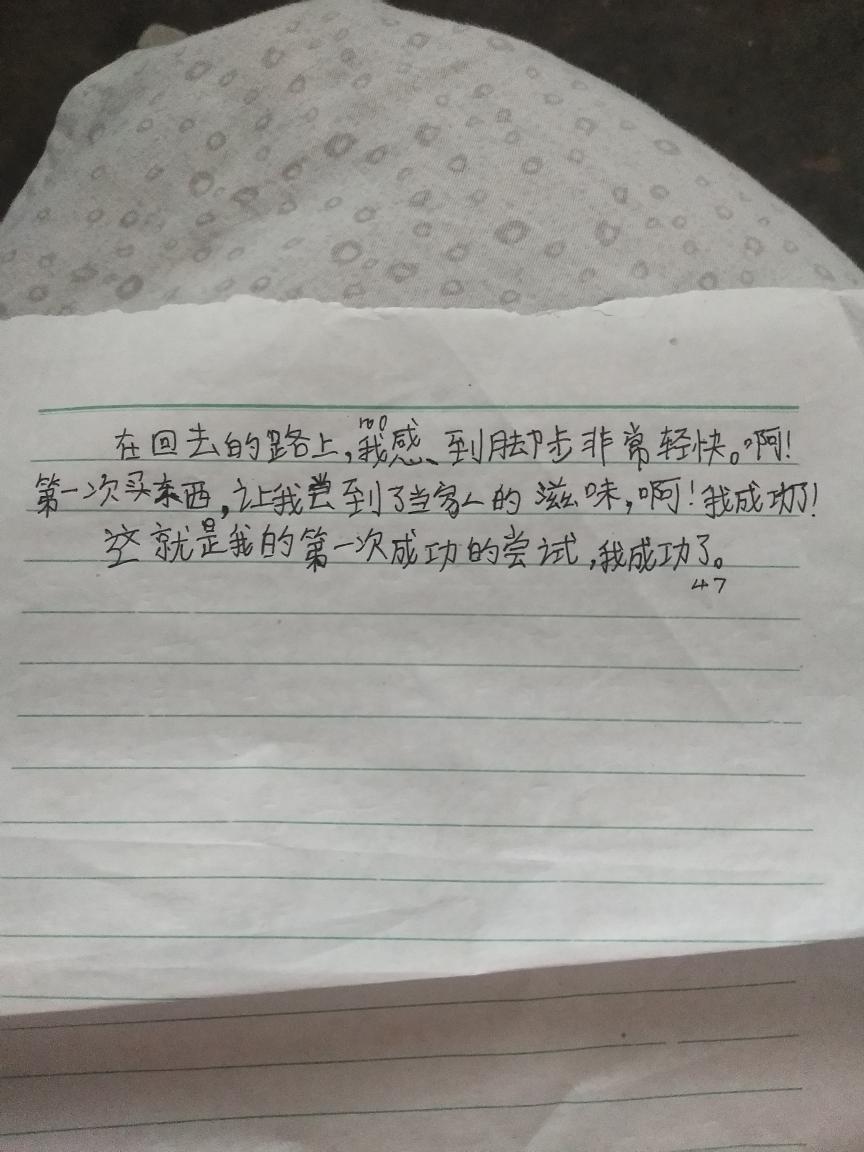 100
在回去的路上,我感到脚步非常轻快。啊!
第一次买东西,让我尝到了当家人的滋味,啊!我成功了!
这就是我的第一次成功的尝试,我成功了。
47